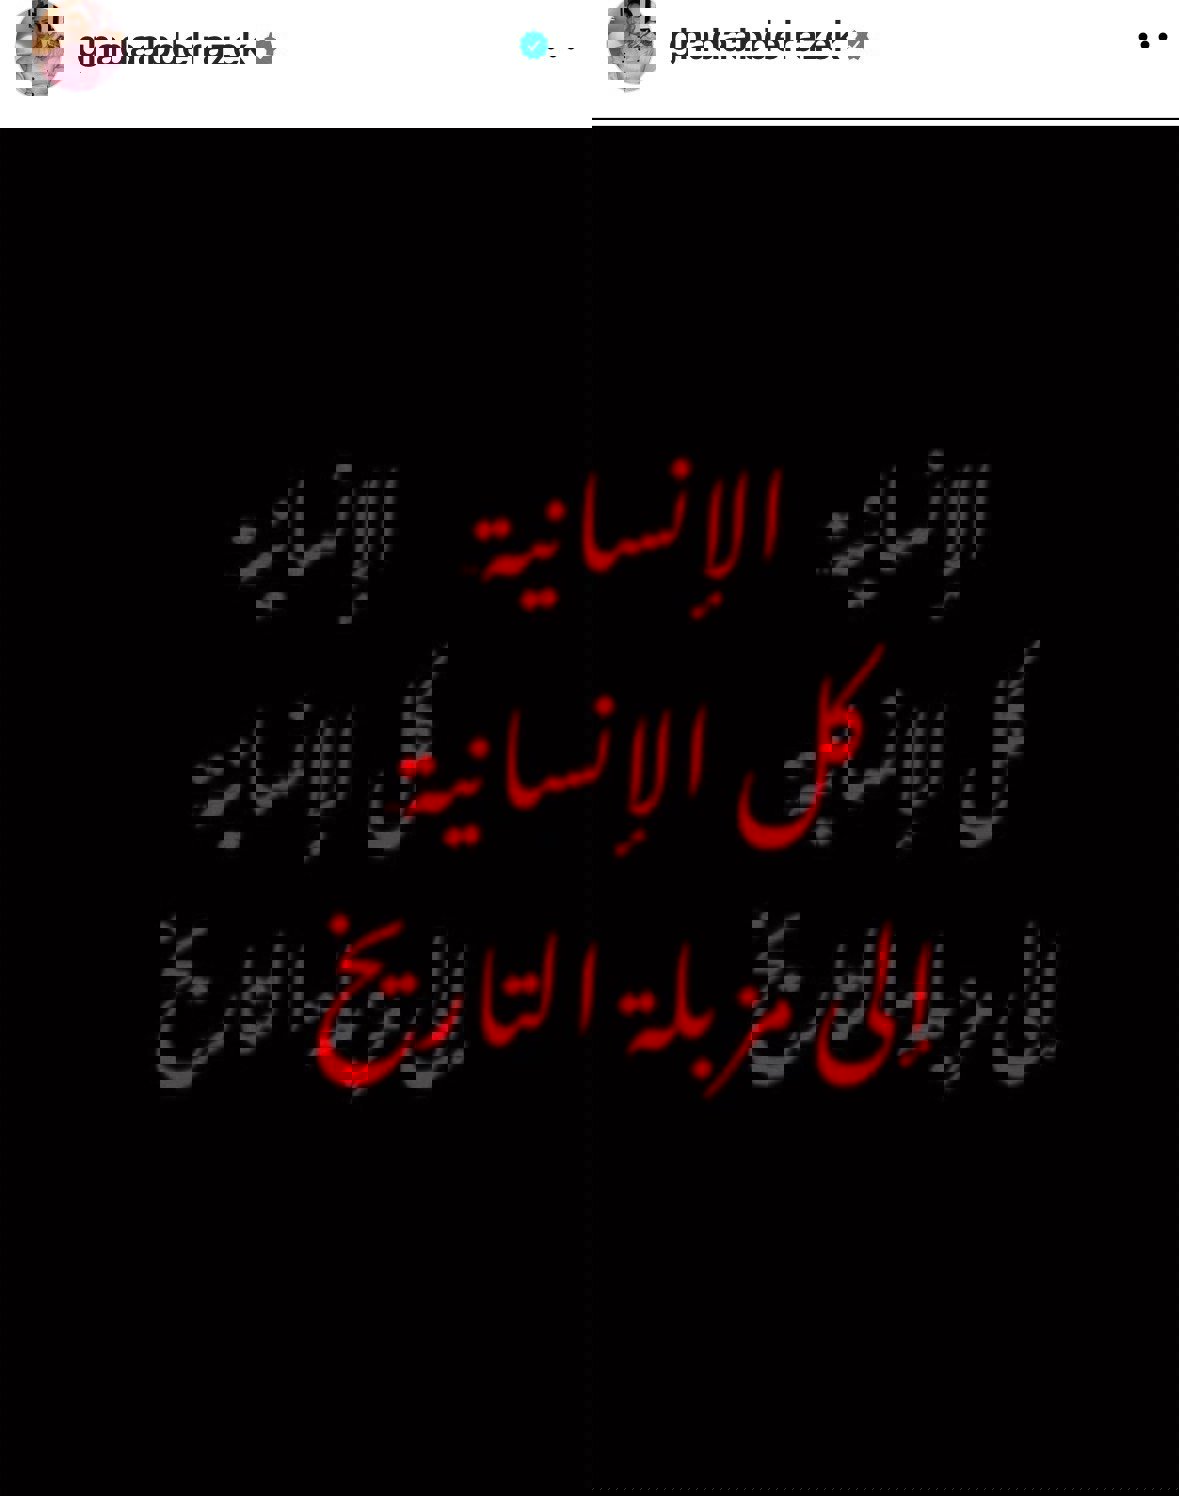 الإنسانية
كل الإنسانية
إلى مزبلة التاريخ